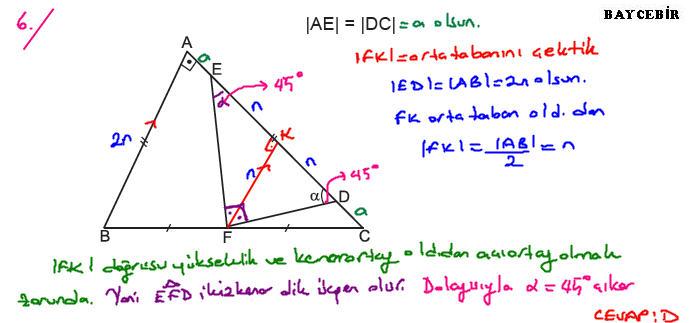 BAYCEBİR
6./
|AE| = |DC| = a olsun.
|FK| = orta tabanını çektik
|ED| = |AB| = 2n olsun.
FK orta taban old. dan
|FK| = |AB|/2 = n
A
a
E
45°
α
n
2n
K
n
n
45°
α
D
a
B
F
C
|FK| doğrusu yükseklik ve kenarortay oldıdan açıortay olmak
zorunda. Yani EFD ikizkenar dik üçgen olur. Dolayısıyla α = 45° çıkar
CEVAP: D